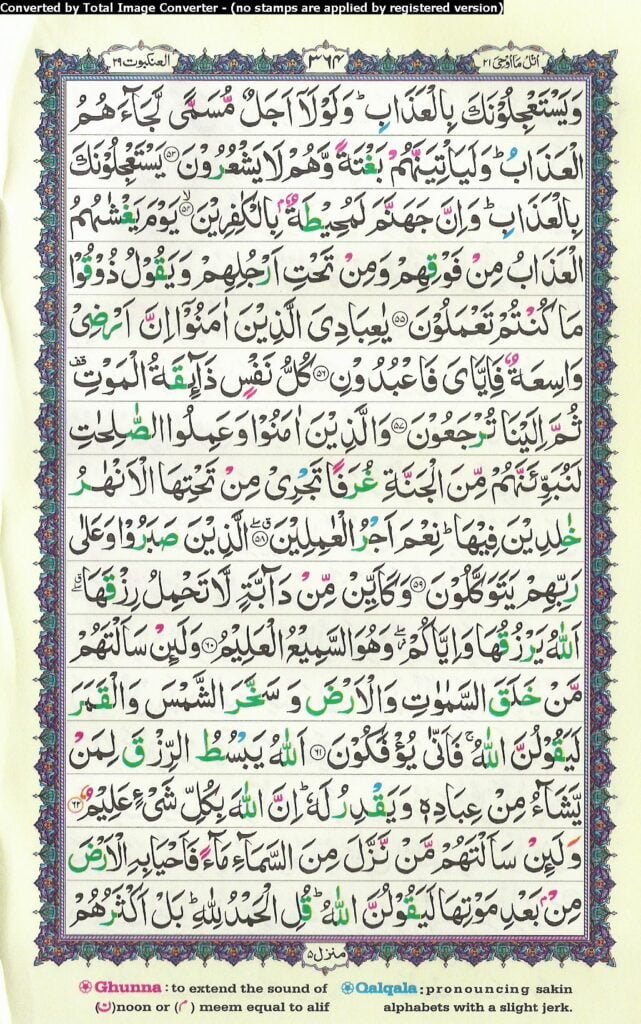 Converted by Total Image Converter - (no stamps are applied by registered version)
اتل ما اوحی ۲۱
۳۶۴
العنکبوت ۲۹
وَيَسْتَعْجِلُوْنَكَ بِالْعَذَابِ ؕ وَلَوْلَاۤ اَجَلٌ مُّسَمًّى لَّجَآءَهُمُ
الْعَذَابُ ؕ وَلَيَاْتِيَنَّهُمْ بَغْتَةً وَّهُمْ لَا يَشْعُرُوْنَ ۝۵۳ يَسْتَعْجِلُوْنَكَ
بِالْعَذَابِ ؕ وَاِنَّ جَهَنَّمَ لَمُحِيْطَةٌۢ بِالْكٰفِرِيْنَ ۙ۝۵۴ يَوْمَ يَغْشٰىهُمُ
الْعَذَابُ مِنْ فَوْقِهِمْ وَمِنْ تَحْتِ اَرْجُلِهِمْ وَيَقُوْلُ ذُوْقُوْا
مَا كُنْتُمْ تَعْمَلُوْنَ ۝۵۵ يٰعِبَادِىَ الَّذِيْنَ اٰمَنُوْۤا اِنَّ اَرْضِىْ
وَاسِعَةٌ فَاِيَّاىَ فَاعْبُدُوْنِ ۝۵۶ كُلُّ نَفْسٍ ذَآىِٕقَةُ الْمَوْتِ قف
ثُمَّ اِلَيْنَا تُرْجَعُوْنَ ۝۵۷ وَالَّذِيْنَ اٰمَنُوْا وَعَمِلُوا الصّٰلِحٰتِ
لَنُبَوِّئَنَّهُمْ مِّنَ الْجَنَّةِ غُرَفًا تَجْرِىْ مِنْ تَحْتِهَا الْاَنْهٰرُ
خٰلِدِيْنَ فِيْهَا ؕ نِعْمَ اَجْرُ الْعٰمِلِيْنَ ۝۵۸ الَّذِيْنَ صَبَرُوْا وَعَلٰى
رَبِّهِمْ يَتَوَكَّلُوْنَ ۝۵۹ وَكَاَيِّنْ مِّنْ دَآبَّةٍ لَّا تَحْمِلُ رِزْقَهَا
اَللّٰهُ يَرْزُقُهَا وَاِيَّاكُمْ وَهُوَ السَّمِيْعُ الْعَلِيْمُ ۝۶۰ وَلَىِٕنْ سَاَلْتَهُمْ
مَّنْ خَلَقَ السَّمٰوٰتِ وَالْاَرْضَ وَسَخَّرَ الشَّمْسَ وَالْقَمَرَ
لَيَقُوْلُنَّ اللّٰهُ ۚ فَاَنّٰى يُؤْفَكُوْنَ ۝۶۱ اَللّٰهُ يَبْسُطُ الرِّزْقَ لِمَنْ
يَّشَآءُ مِنْ عِبَادِهٖ وَيَقْدِرُ لَهٗ ؕ اِنَّ اللّٰهَ بِكُلِّ شَىْءٍ عَلِيْمٌ ۝۶۲
وَلَىِٕنْ سَاَلْتَهُمْ مَّنْ نَّزَّلَ مِنَ السَّمَآءِ مَآءً فَاَحْيَا بِهِ الْاَرْضَ
مِنْۢ بَعْدِ مَوْتِهَا لَيَقُوْلُنَّ اللّٰهُ ؕ قُلِ الْحَمْدُ لِلّٰهِ ؕ بَلْ اَكْثَرُهُمْ
منزل ۵
Ghunna : to extend the sound of
(ن)noon or (م) meem equal to alif
Qalqala : pronouncing sakin
alphabets with a slight jerk.